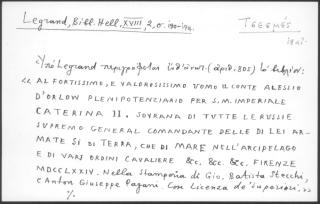 Legrand, Bibl. Hell. XVIII, 2, σ. 190-191.
«Ὑπὸ Legrand περιγράφεται ὑπ' ἀριθ. 805)
« AL FORTISSIMO, E VALOROSISSIMO UOMO IL CONTE ALESSIO
D'ORLOW PLENIPOTENCIARIO PER S.M. IMPERIALE
CATERINA II. SOVRANA DI TUTTE LE RUSSIE
SUPREMO GENERAL COMANDANTE DELLE DI LEI AR-
MATE SI DI TERRA, CHE DI MARE NELL'ARCIPELAGO
E DI VARJ ORDINI CAVALIERE &c. &c. &c. FIRENZE
MDCCLXXIV. Nella Stamperia di Gio. Batista Stecchi,
e Anton Giuseppe Pagani. Con Licenza de' superiori.»
·/.